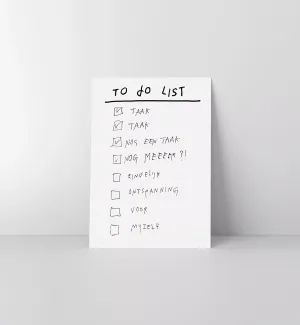 TO DO LIST
TAAK
TAAK
NOG EEN TAAK
NOG MEEEER ?!
EINDELIJK
ONTSPANNING
VOOR
MIJZELF